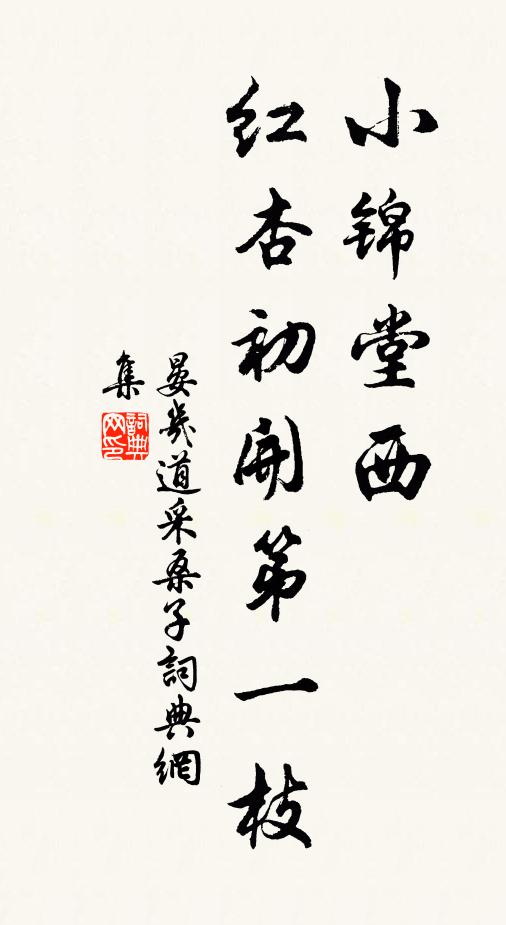 小锦堂西
红杏初開第一枝
晏幾道采桑子詞典網
集
詞典网印